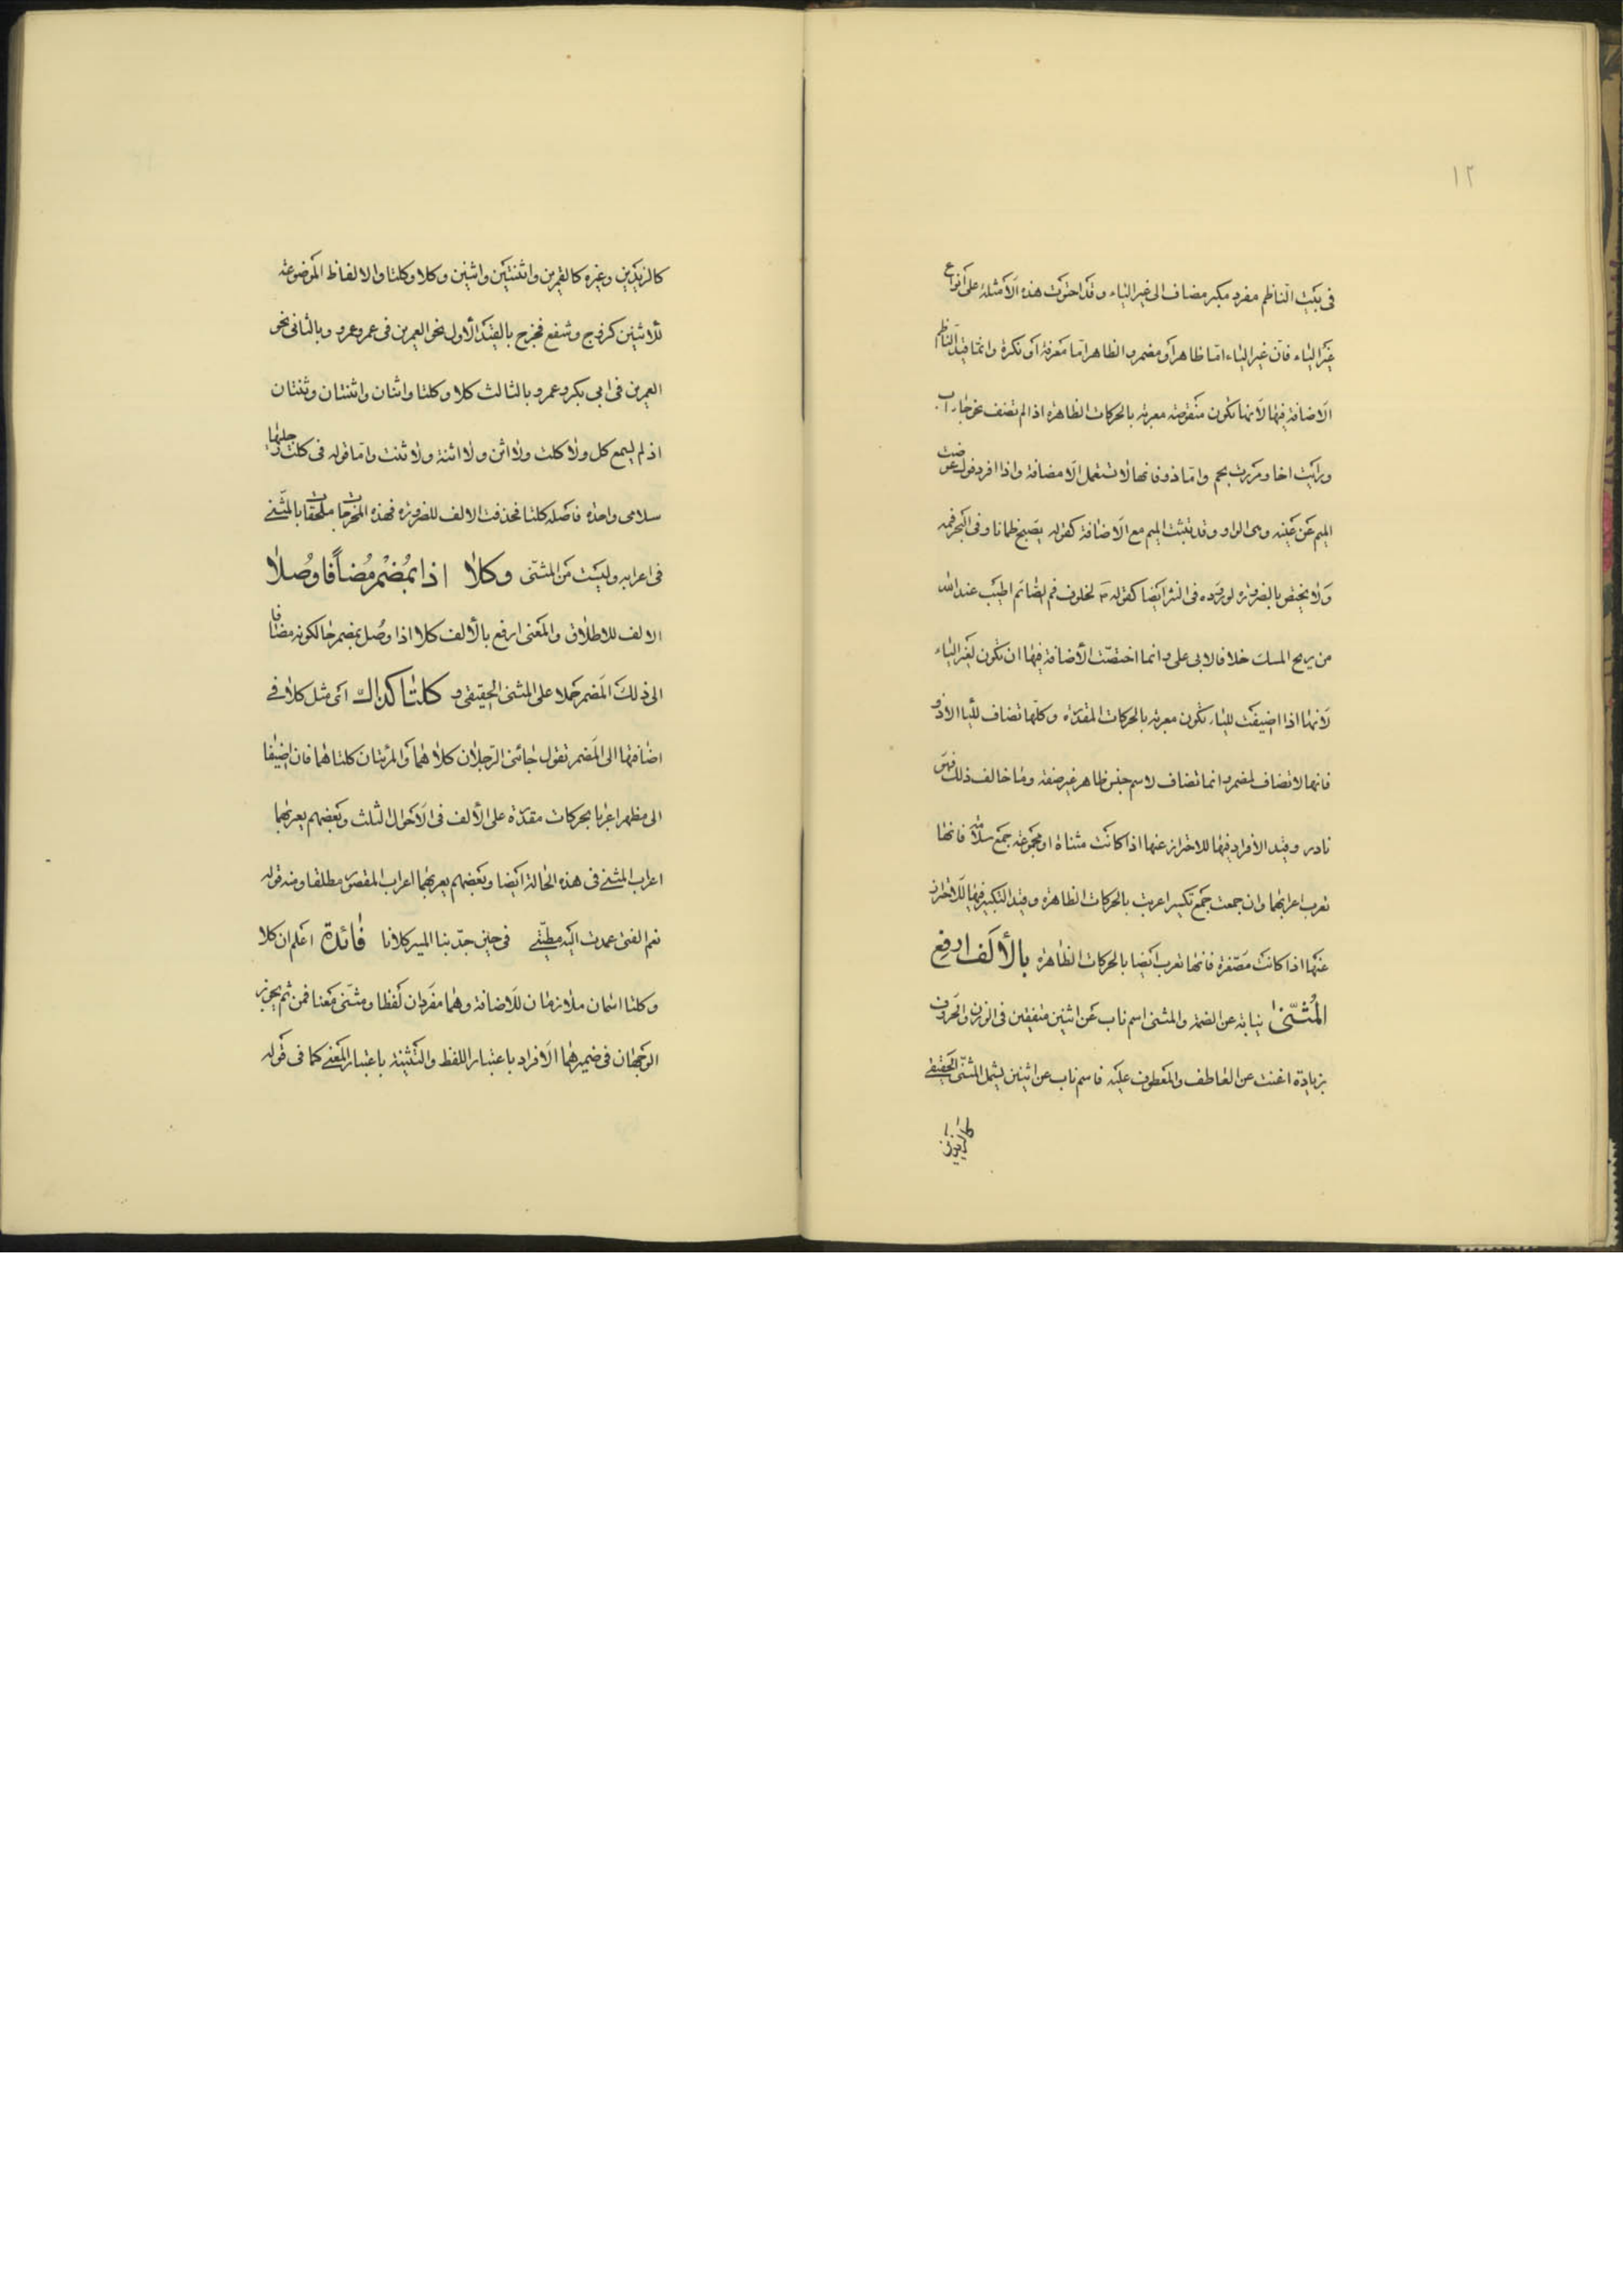 ١٢
في بيت الناظم مفرد مكبر مضاف الى غير الياء وقد احتوت هذه الامثلة على انواع
غير الياء فان غير الياء اما ظاهر او مضمر والظاهر اما معرفة او نكرة وانما قيد الناظم
الاضافة فيها لانها تكون منقوصة معربة بالحركات الظاهرة اذا لم تضف نحو جاء اب
ورايت اخا ومررت بحم واما ذو فانها لا تستعمل الا مضافة واذا افرد فوك عوضت
الميم عن عينه وهى الواو وقد تثبت الميم مع الاضافة كقوله يصبح ظمانا وفى البحر فمه
ولا يختص بالضرورة لوروده فى النثر ايضا كقوله لخلوف فم الصائم اطيب عند الله
من ريح المسك خلافا لابى على وانما اختصت الاضافة فيها ان تكون لغير الياء
لانها اذا اضيفت للياء تكون معربة بالحركات المقدرة وكلها تضاف للياء الا ذو
فانها لا تضاف لمضمر وانما تضاف لاسم جنس ظاهر غير صفة وما خالف ذلك فهو
نادر وقيد الافراد فيها للاحتراز عنها اذا كانت مثناة او مجموعة جمع سلامة فانها
تعرب اعرابهما وان جمعت جمع تكسير اعربت بالحركات الظاهرة وقيد التكبير فيها للاحتراز
عنها اذا كانت مصغرة فانها تعرب ايضا بالحركات الظاهرة بالألف ارفع
المُثنّى نيابة عن الضمة والمثنى اسم ناب عن اثنين متفقين فى الوزن والحروف
بزيادة اغنت عن العاطف والمعطوف عليه فاسم ناب عن اثنين يشمل المثنى الحقيقى
كالزيدين
كالزيدين وغيره كالقمرين واثنتين واثنين وكلا وكلتا والالفاظ الموضوعة
للاثنين كزوج وشفع فخرج بالقيد الأول نحو العمرين فى عمرو وعمر وبالثانى نحو
العمرين فى ابي بكر وعمر وبالثالث كلا وكلتا واثنان واثنتان وثنتان
اذ لم يسمع كل ولا كلت ولا اثن ولا اثنة ولا ثنت واما قوله فى كلت رجليها
سلامى واحده فاصله كلتا فحذفت الالف للضرورة فهذه المخرجات ملحقات بالمثنى
فى اعرابه وليست من المثنى وكلا اذا بمُضْمَر مُضافًا وُصلا
الالف للاطلاق والمعنى ارفع بالألف كلا اذا وصل بمضمر حالكونه مضافا
الى ذلك المضمر حملا على المثنى الحقيقى و كلتا كذاك اى مثل كلا فى
اضافتها الى المضمر تقول جائنى الرجلان كلاهما والمرئتان كلتاهما فان اضيفا
الى مظهر اعربا بحركات مقدرة على الألف فى الاحوال الثلث وبعضهم يعربهما
اعراب المثنى فى هذه الحالة ايضا وبعضهم يعربهما اعراب المقصور مطلقا ومنه قوله
نعم الفتى عمدت اليه مطيتى فى حين جد بنا المسير كلانا فائدة اعلم ان كلا
وكلتا اسمان ملازمان للاضافة وهما مفردان لفظا ومثنى معنا فمن ثم يجوز
الوجهان فى ضميرهما الافراد باعتبار اللفظ والتثنية باعتبار المعنى كما فى قوله